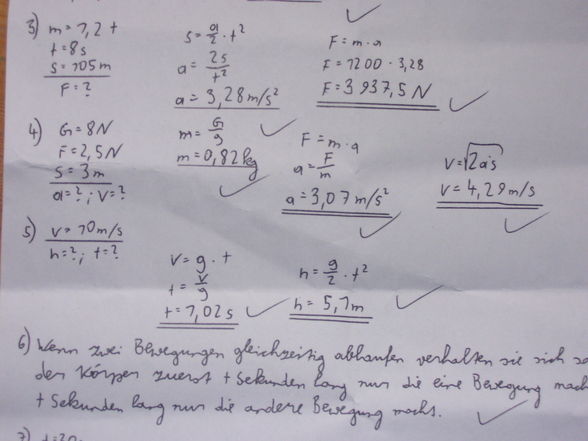 3) m = 1,2 t
t = 8s
s = 105m
F = ?
s = a/2 · t²
a = 2s/t²
a = 3,28 m/s²
F = m · a
F = 1200 · 3,28
F = 3 937,5 N
4) G = 8N
F = 2,5N
s = 3m
a = ? ; v = ?
m = G/g
m = 0,82 kg
F = m · a
a = F/m
a = 3,07 m/s²
v = √2as
v = 4,29 m/s
5) v = 10 m/s
h = ? ; t = ?
v = g · t
t = v/g
t = 1,02 s
h = g/2 · t²
h = 5,1 m
6) Wenn zwei Bewegungen gleichzeitig ablaufen verhalten sie sich
der Körper zuerst t Sekunden lang nur die eine Bewegung mach
t Sekunden lang nur die andere Bewegung macht.
7)